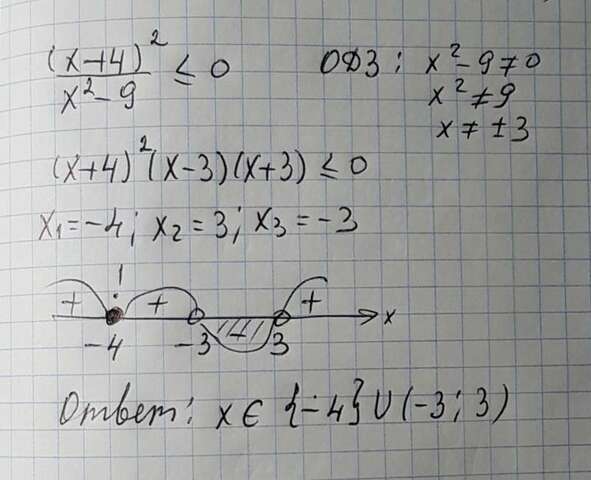 (x+4)²/(x²-9) ≤ 0
ОДЗ: x²-9≠0
x²≠9
x≠±3
(x+4)²(x-3)(x+3) ≤ 0
x₁=-4; x₂=3; x₃=-3
+ ! + + x
-4 -3 3
Ответ: x∈{-4}∪(-3; 3)